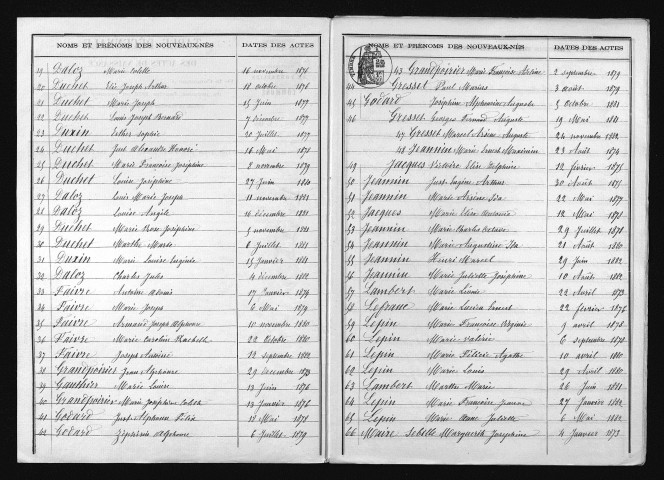 NOMS ET PRÉNOMS DES NOUVEAUX-NÉS DATES DES ACTES
19 Daloz Marie 16 novembre 1876
20 Duchet Elie Joseph Arthur 18 octobre 1876
21 Duchet Marie Joseph 15 Juin 1877
22 Duchet Louis Joseph 7 décembre 1877
23 Duxin Esther 20 Juillet 1877
24 Duchet Just Alexandre Honoré 16 Mai 1878
25 Duchet Marie Françoise Joséphine 2 novembre 1879
26 Duchet Louise Joséphine 27 Juin 1880
27 Daloz Louis Marie Joseph 11 novembre 1881
28 Daloz Louise Angèle 16 décembre 1881
29 Duchet Marie Rose Joséphine 5 novembre 1881
30 Duchet Marthe Marie 6 Juillet 1881
31 Duxin Marie Louise Eugénie 15 Janvier 1881
32 Daloz Charles Jules 4 décembre 1882
33 Faivre 17 Janvier 1874
34 Faivre Marie Joseph 6 Mai 1879
35 Faivre Armand Joseph Alphonse 10 novembre 1880
36 Faivre Marie Caroline Rachelle 22 Octobre 1880
37 Faivre Joseph 12 septembre 1882
38 Grandpoirier Jean Alphonse 29 décembre 1873
39 Gauthier Marie Louise 13 Juin 1876
40 Grandpoirier Marie Joséphine 13 Janvier 1876
41 Godard Just Alphonse Félix 11 Mai 1878
42 Godard Alphonse 6 Juillet 1879
NOMS ET PRÉNOMS DES NOUVEAUX-NÉS DATES DES ACTES
43 Grandpoirier Marie Françoise 2 septembre 1879
44 Gresset Paul Marius 3 août 1879
45 Godard Joséphine Alphonsine 5 Octobre 1881
46 Gresset Georges Fernand Auguste 19 Mai 1881
47 Gresset Marcel Auguste 24 novembre 1882
48 Jeannin Marie Ernest 23 Août 1874
49 Jacques Victoire Elise Delphine 12 février 1875
50 Jeannin Just Eugène Arthur 30 Août 1875
51 Jeannin Marie 22 Mai 1877
52 Jacques Marie Elise 12 Mai 1878
53 Jeannin Marie Charles 29 Juillet 1878
54 Jeannin Marie Augustine 21 Août 1880
55 Jeannin Henri Marcel 29 Juin 1882
56 Jeannin Marie Juliette Joséphine 10 Août 1882
57 Lambert Marie 22 Avril 1873
58 Lefranc Marie Ernest 22 février 1876
59 Lepin Marie Françoise 9 avril 1878
60 Lepin Marie Valérie 6 septembre 1878
61 Lepin Marie Agathe 10 avril 1880
62 Lepin Marie Louis 29 Avril 1880
63 Lambert Marthe Marie 26 Juin 1881
64 Lepin Marie Françoise Jeanne 27 Janvier 1882
65 Lepin Marie Anne Juliette 6 Mai 1882
66 Maire Marguerite Joséphine 4 Janvier 1873